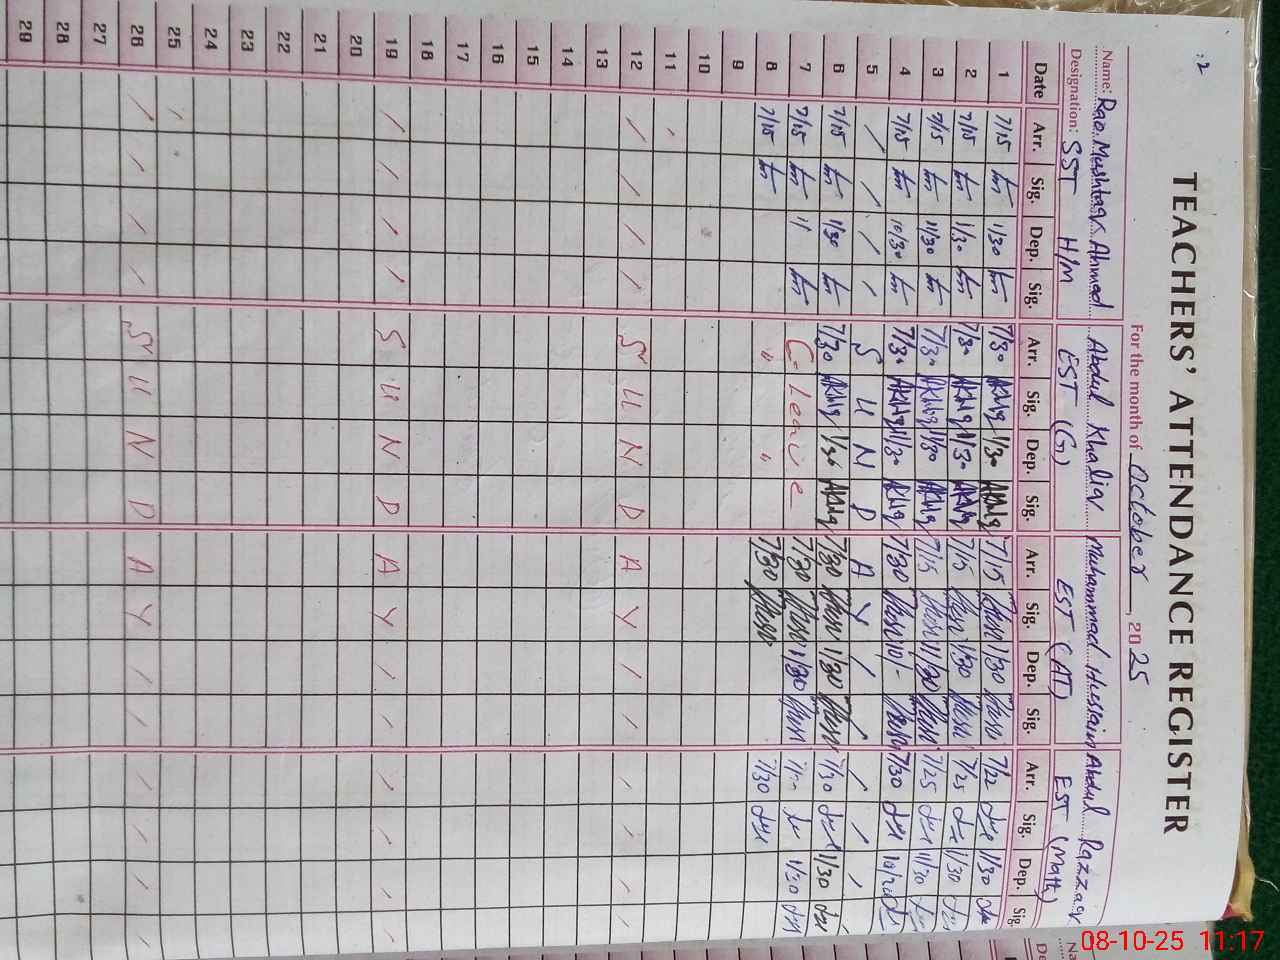 :2
TEACHERS' ATTENDANCE REGISTER
For the month of October, 2025
Name: Rao Mushtaq Ahmad Abdul Khaliq Muhammad Hussain Abdul Razzaq
Designation: SST H/M EST (G) EST (AT) EST (Math)
Date Arr. Sig. Dep. Sig. Arr. Sig. Dep. Sig. Arr. Sig. Dep. Sig. Arr. Sig. Dep. Sig.
1 7/15 1/30 7/30 1/30 7/15 1/30 7/22 1/30
2 7/15 1/30 7/30 1/30 7/15 1/30 7/25 1/30
3 7/15 11/30 7/30 11/30 7/15 11/30 7/25 11/30
4 7/15 10/30 7/30 11/30 7/30 10/- 7/30
5 S U N D A Y
6 7/15 1/30 7/30 1/30 7/30 1/30 7/30 1/30
7 7/15 11 C. Leave 7/30 1/30 1/30
8 7/15 " " 7/30 7/30
9
10
11
12 S U N D A Y
13
14
15
16
17
18
19 S U N D A Y
20
21
22
23
24
25
26 S U N D A Y
27
28
29
08-10-25 11:17